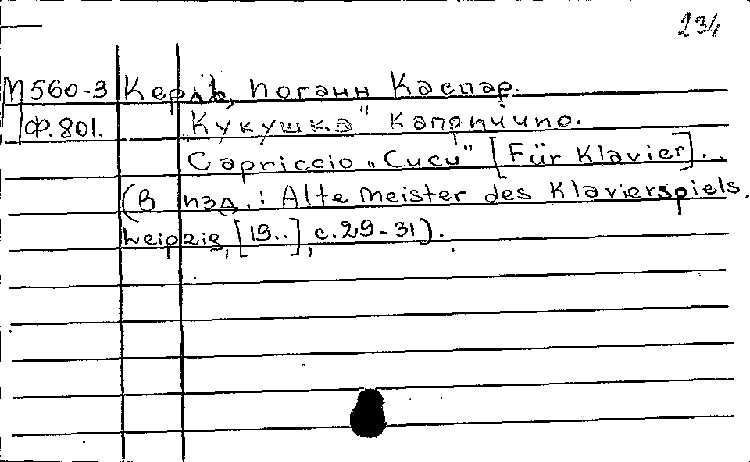 234
М560-3 Керль, Иоганн Каспар.
Ф.801. Кукушка" Каприччио.
Capriccio „Cucu" [Für Klavier].
(В изд.: Alte Meister des Klavierspiels.
Leipzig, [19..], с.29-31).